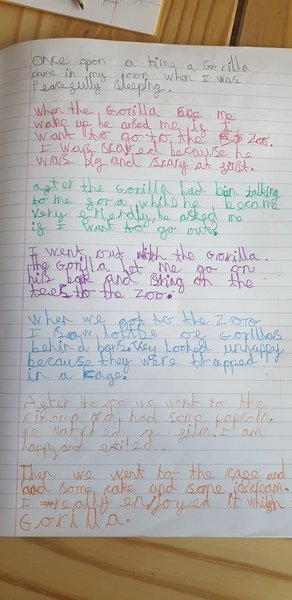 once upon a time a Gorilla
came in my room when I was
Peacefully sleeping.
when the Gorilla see me
wake up he asked me if I
want to go to the zoo.
I was scared because he
was big and scary at first.
after the Gorilla had bin talking
to me for a while he became
very friendly, he asked me
if I want to go out.
I went out with the Gorilla.
the Gorilla let me go on
his back and swing on the
tees to the Zoo.
When we got to the zoo
I saw lots of Gorillas
behind bars. they looked unhappy
because they were trapped
in a cage.
After the zoo we went to the
and had some popcorn.
we watched a film. I am
happy and exited.
Then we went to the cafe and
had some cake and some icecream.
I really enjoyed it with
Gorilla.